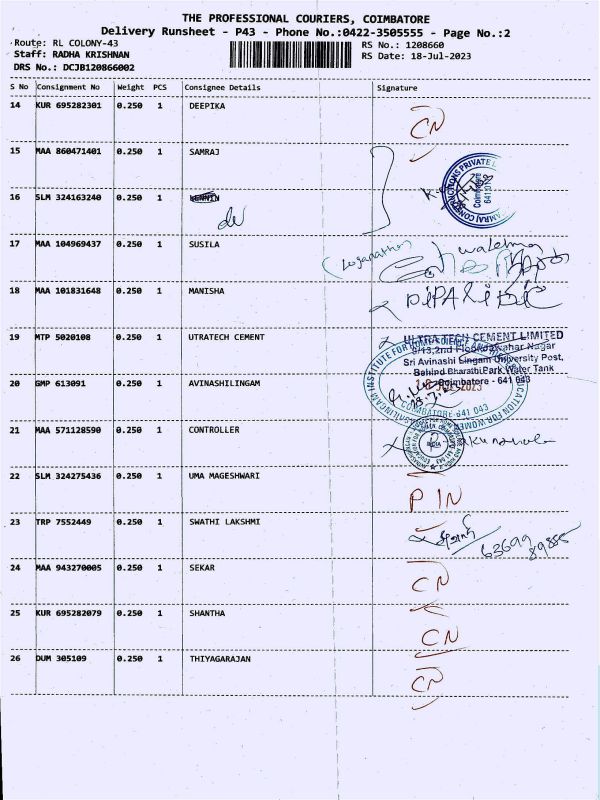 THE PROFESSIONAL COURIERS, COIMBATORE
Delivery Runsheet - P43 - Phone No.:0422-3505555 - Page No.:2
Route: RL COLONY-43 RS No.: 1208660
Staff: RADHA KRISHNAN RS Date: 18-Jul-2023
DRS No.: DCJB120866002
S No Consignment No Weight PCS Consignee Details Signature
14 KUR 695282301 0.250 1 DEEPIKA CN
15 MAA 860471401 0.250 1 SAMRAJ
16 SLM 324163240 0.250 1
17 MAA 104969437 0.250 1 SUSILA
18 MAA 101831648 0.250 1 MANISHA
19 MTP 5020108 0.250 1 UTRATECH CEMENT
ULTRA TECH CEMENT LIMITED
9/13,2nd Floor,Jawahar Nagar
Sri Avinashi Lingam University Post,
Behind Bharathi Park Water Tank
Coimbatore - 641 043
20 GMP 613091 0.250 1 AVINASHILINGAM
COIMBATORE-641 043
21 MAA 571128590 0.250 1 CONTROLLER
22 SLM 324275436 0.250 1 UMA MAGESHWARI PIN
23 TRP 7552449 0.250 1 SWATHI LAKSHMI
63699
89885
24 MAA 943270005 0.250 1 SEKAR CN
25 KUR 695282079 0.250 1 SHANTHA CN
26 DUM 305109 0.250 1 THIYAGARAJAN CN